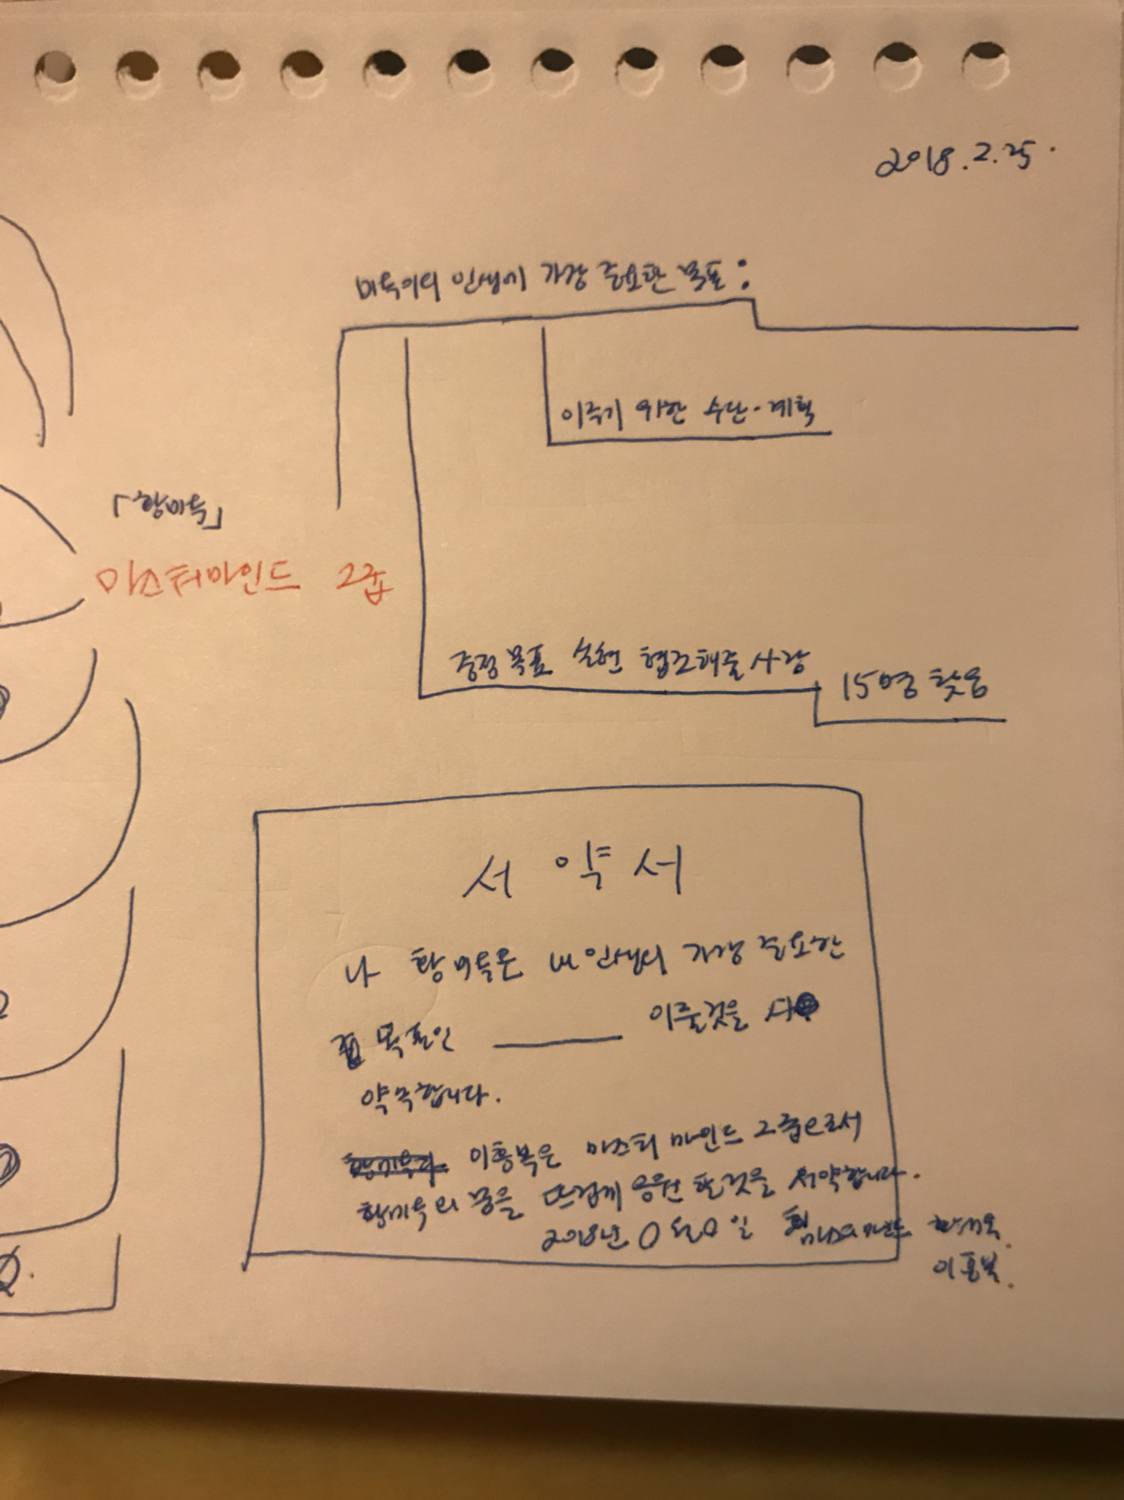 2018.2.25.
미옥이의 인생에 가장 중요한 목표:
이루기 위한 수단·계획
「황미옥」
마스터마인드 그룹
중점목표 실현 협조해줄 사람
15명 찾음
서 약 서
나 황미옥은 내 인생의 가장 중요한
목표인 ______ 이룰것을 서
약속합니다.
이흥복은 마스터 마인드 그룹으로서
황미옥의 꿈을 뜨겁게 응원 할것을 서약합니다.
2018년 0월0일 마스터마인드 황미옥.
이흥복.